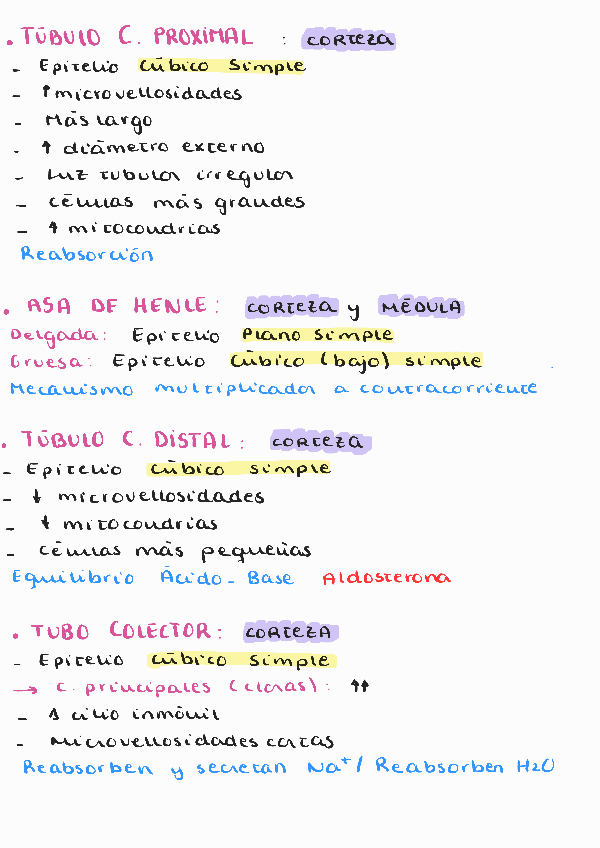 . TÚBULO C. PROXIMAL : CORTEZA
- Epitelio cúbico simple
- ↑microvellosidades
- Más largo
- ↑ diámetro externo
- Luz tubular irregular
- células más grandes
- ↑ mitocondrias
Reabsorción
. ASA DE HENLE: CORTEZA y MÉDULA
Delgada: Epitelio Plano simple
Gruesa: Epitelio Cúbico (bajo) simple
Mecanismo multiplicador a contracorriente
. TÚBULO C. DISTAL: CORTEZA
- Epitelio cúbico simple
- ↓ microvellosidades
- ↓ mitocondrias
- células más pequeñas
Equilibrio Ácido-Base Aldosterona
. TUBO COLECTOR: CORTEZA
- Epitelio cúbico simple
→ C. principales (claras): ↑↑
- 1 cilio inmóvil
- Microvellosidades cortas
Reabsorben y secretan Na+/ Reabsorben H2O